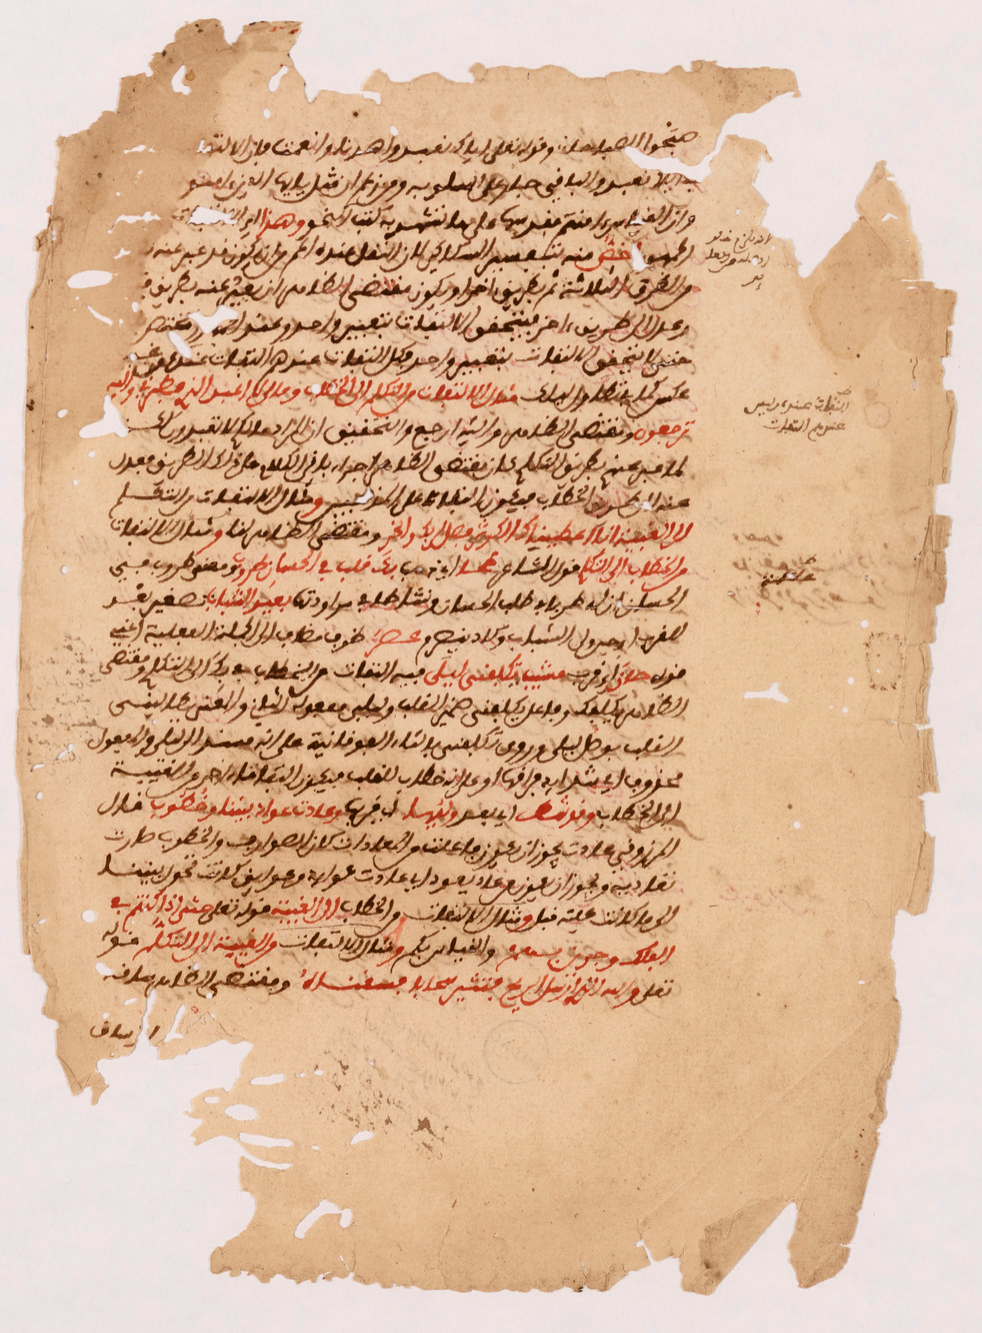 صبحوا الصباحا وقوله تعالى اياك نعبد واهدنا وانعمت فان الالتفا
نعبد والباقي جار على اسلوبه ومن زعم ان مثل يايها الذين امنو
فقد سها على ما تشهد به كتب النحو وهذا اي
الجمهور اخص منه بتفسير السكاكي لان النقل عنده اعم من ان يكون قد عبر عنه
من الطرق الثلاثة ثم بطريق اخر او يكون مقتضى الظاهر ان يعبر عنه بطريق
وعدل الى طريق اخر فيتحقق الالتفات بتعبير واحد وعند مختص
حتى لا يتحقق الالتفات بتعبير واحد فكل التفات عندهم التفات عنده من غير
عكس كما في تطاول ليلك مثال الالتفات من التكلم الى الخطاب ومالي لا اعبد الذي فطرني واليه
ترجعون ومقتضى الظاهر واليه ارجع والتحقيق ان المراد مالكم لا تعبدون لكن
لما عبر عنهم بطريق التكلم كان مقتضى الظاهر اجراء باقي الكلام على ذلك الطريق فعدل
عنه الى طريق الخطاب فيكون التفاتا على المذهبين ومثال الالتفات من التكلم
الى الغيبة انا اعطيناك الكوثر فصل لربك وانحر ومقتضى الظاهر لنا ومثال الالتفات
من الخطاب الى التكلم قول الشاعر طحا اي ذهب بك قلب في الحسان طروب ومعنى طروب في
الحسان ان له طربا في طلب الحسان ونشاطا في مراودتها بعيد الشباب تصغير بعد
للقرب اي حين ولى الشباب وكاد ينصرم عصر ظرف مضاف الى الجملة الفعلية اعني
قوله حان اي قرب مشيب تكلفني ليلى فيه التفات من الخطاب في بك الى التكلم ومقتضى
الظاهر يكلفك وفاعل يكلفني ضمير القلب وليلى مفعوله الثاني والمعنى يطالبني
القلب بوصل ليلى وروي تكلفني بالتاء الفوقانية على انه مسند الى ليلى والمفعول
محذوف اي شدايد فراقها او على انه خطاب للقلب فيكون التفاتا اخر من الغيبة
الى الخطاب وقد شط اي بعد وليها اي قربها وعادت عواد بيننا وخطوب قال
المرزوقي عادت يجوز ان يكون فاعلت من المعاداة كان الصوارف والخطوب صارت
تعاديه ويجوز ان يكون من عاد يعود اي عادت عواد وعوايق كانت تحول بيننا
الى ما كانت عليه قبل ومثال الالتفات من الخطاب الى الغيبة قوله تعالى حتى اذا كنتم في
الفلك وجرين بهم والقياس بكم ومثال الالتفات من الغيبة الى التكلم قوله
تعالى والله الذي ارسل الرياح فتثير سحابا فسقناه ومقتضى الظاهر ساقه
التفات عنده ليس
عندهم التفات